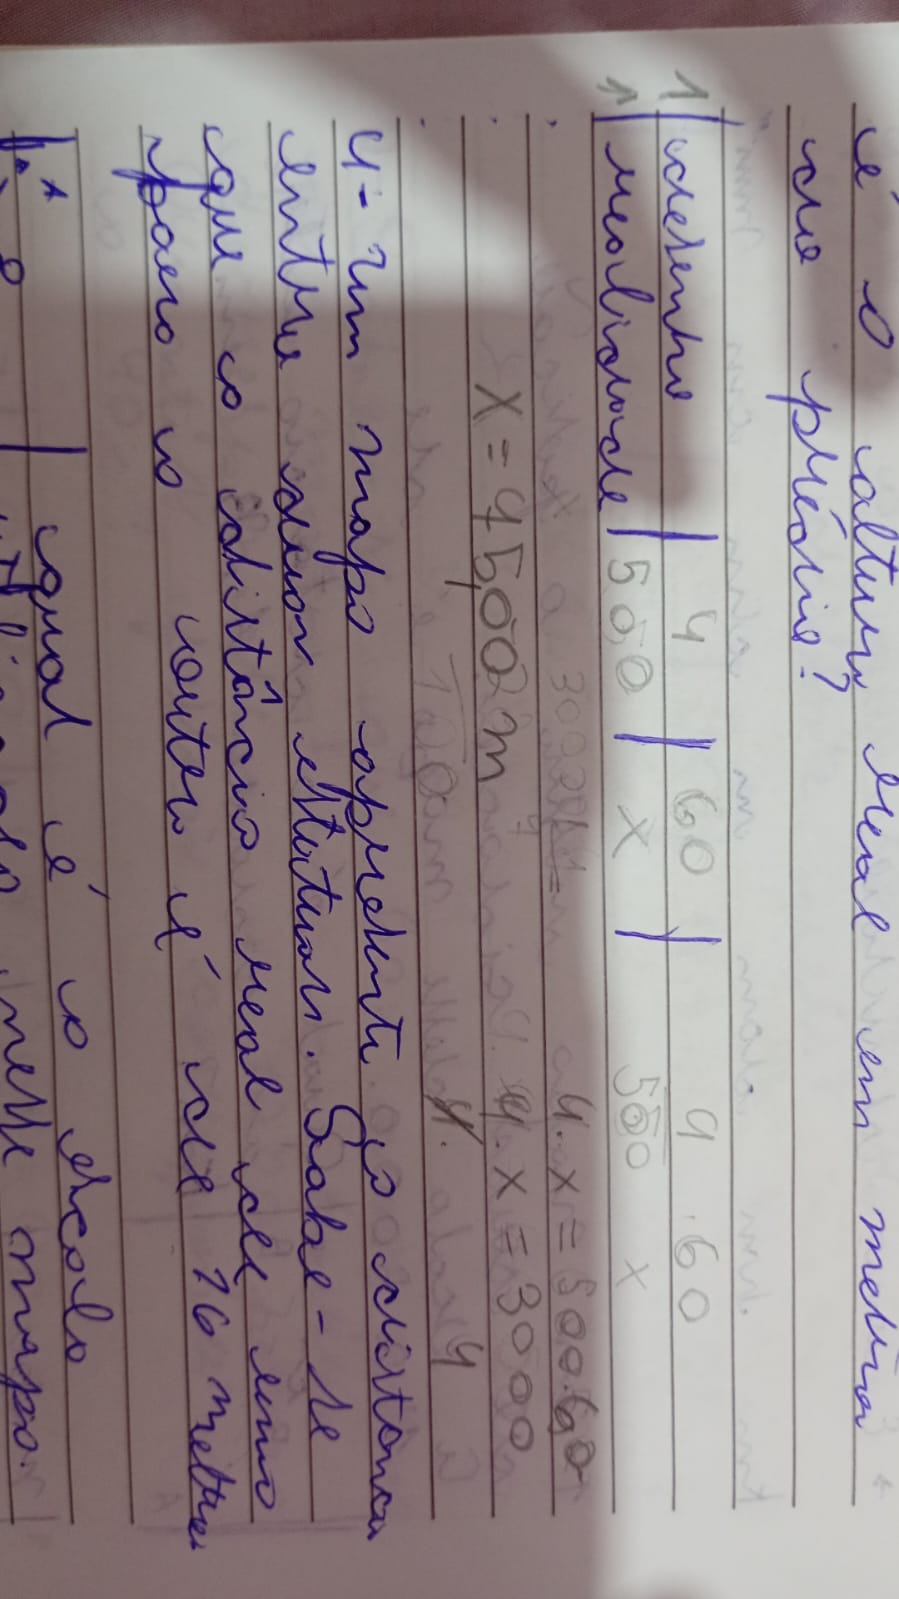 é a altura real em metros
do prédio?
1 desenho | 4 | 60 | 4 60
1 realidade | 500 | x | 500 x
4. x = 500.60
x = 7500 m 4. x = 3000
4
4- Um mapa apresenta a distancia
entre duas estatuas. Sabe-se
que a distância real de uma
para a outra é de 16 metros
qual é a escala
nesse mapa.